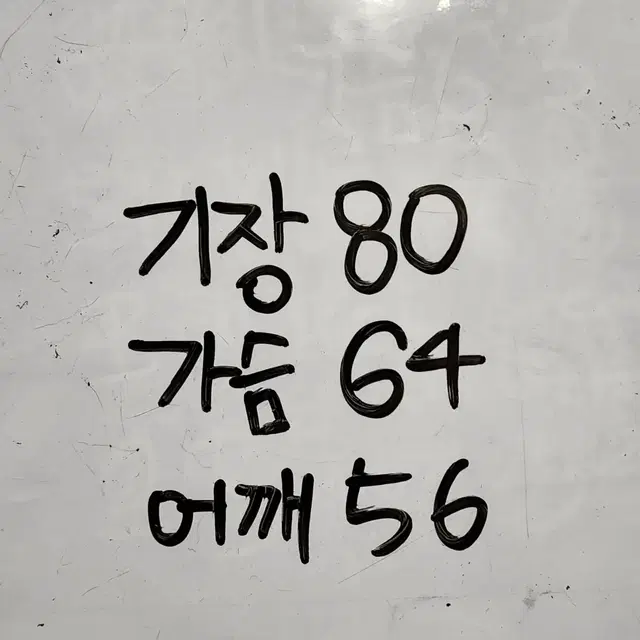 기장 80
가슴 64
어깨 56